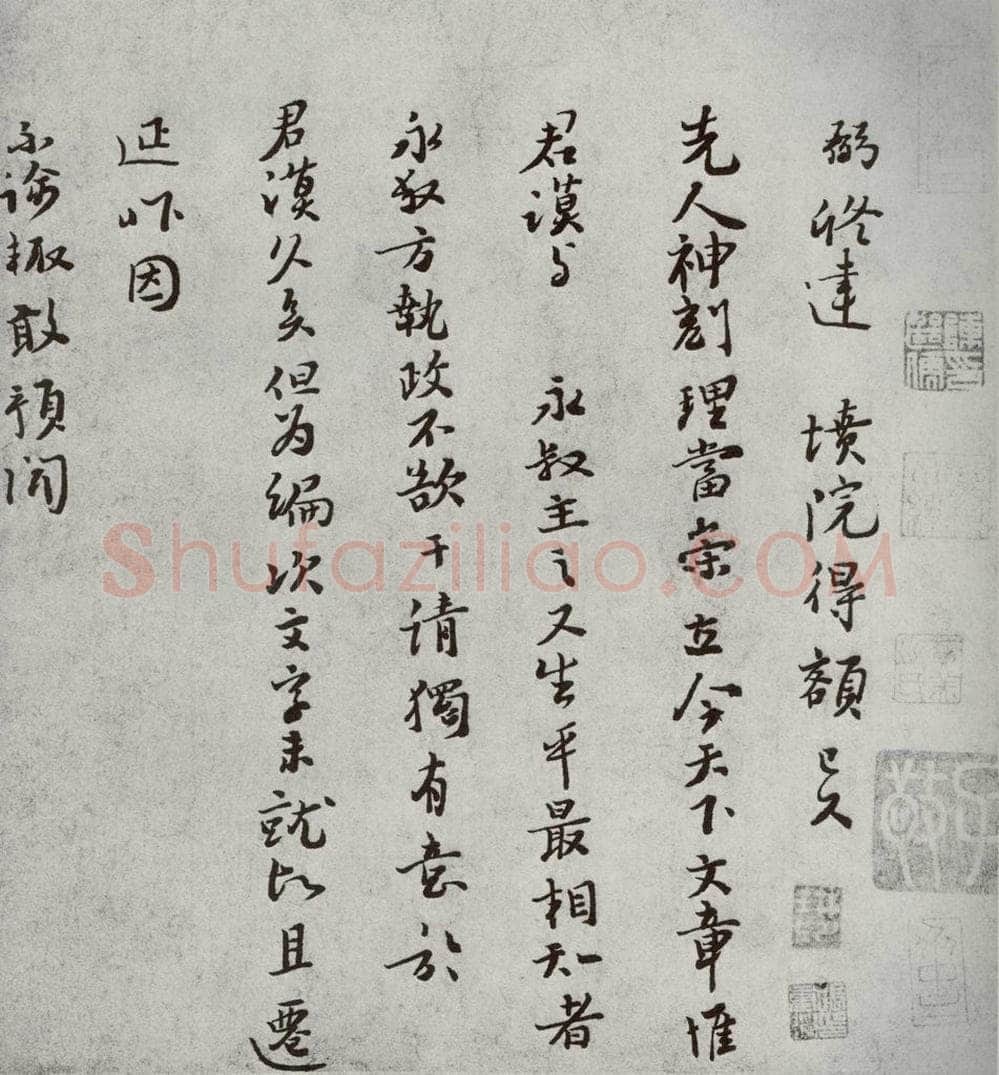 弼修建 墳院得額已久
先人神刻理當崇立今天下文章惟
君謨與 永叔主之又生平最相知者
永叔方執政不欲干請獨有意於
君謨久矣但为編次文字未就以且遷
延昨因
示諭輒敢預聞
Shufaziliao.COM